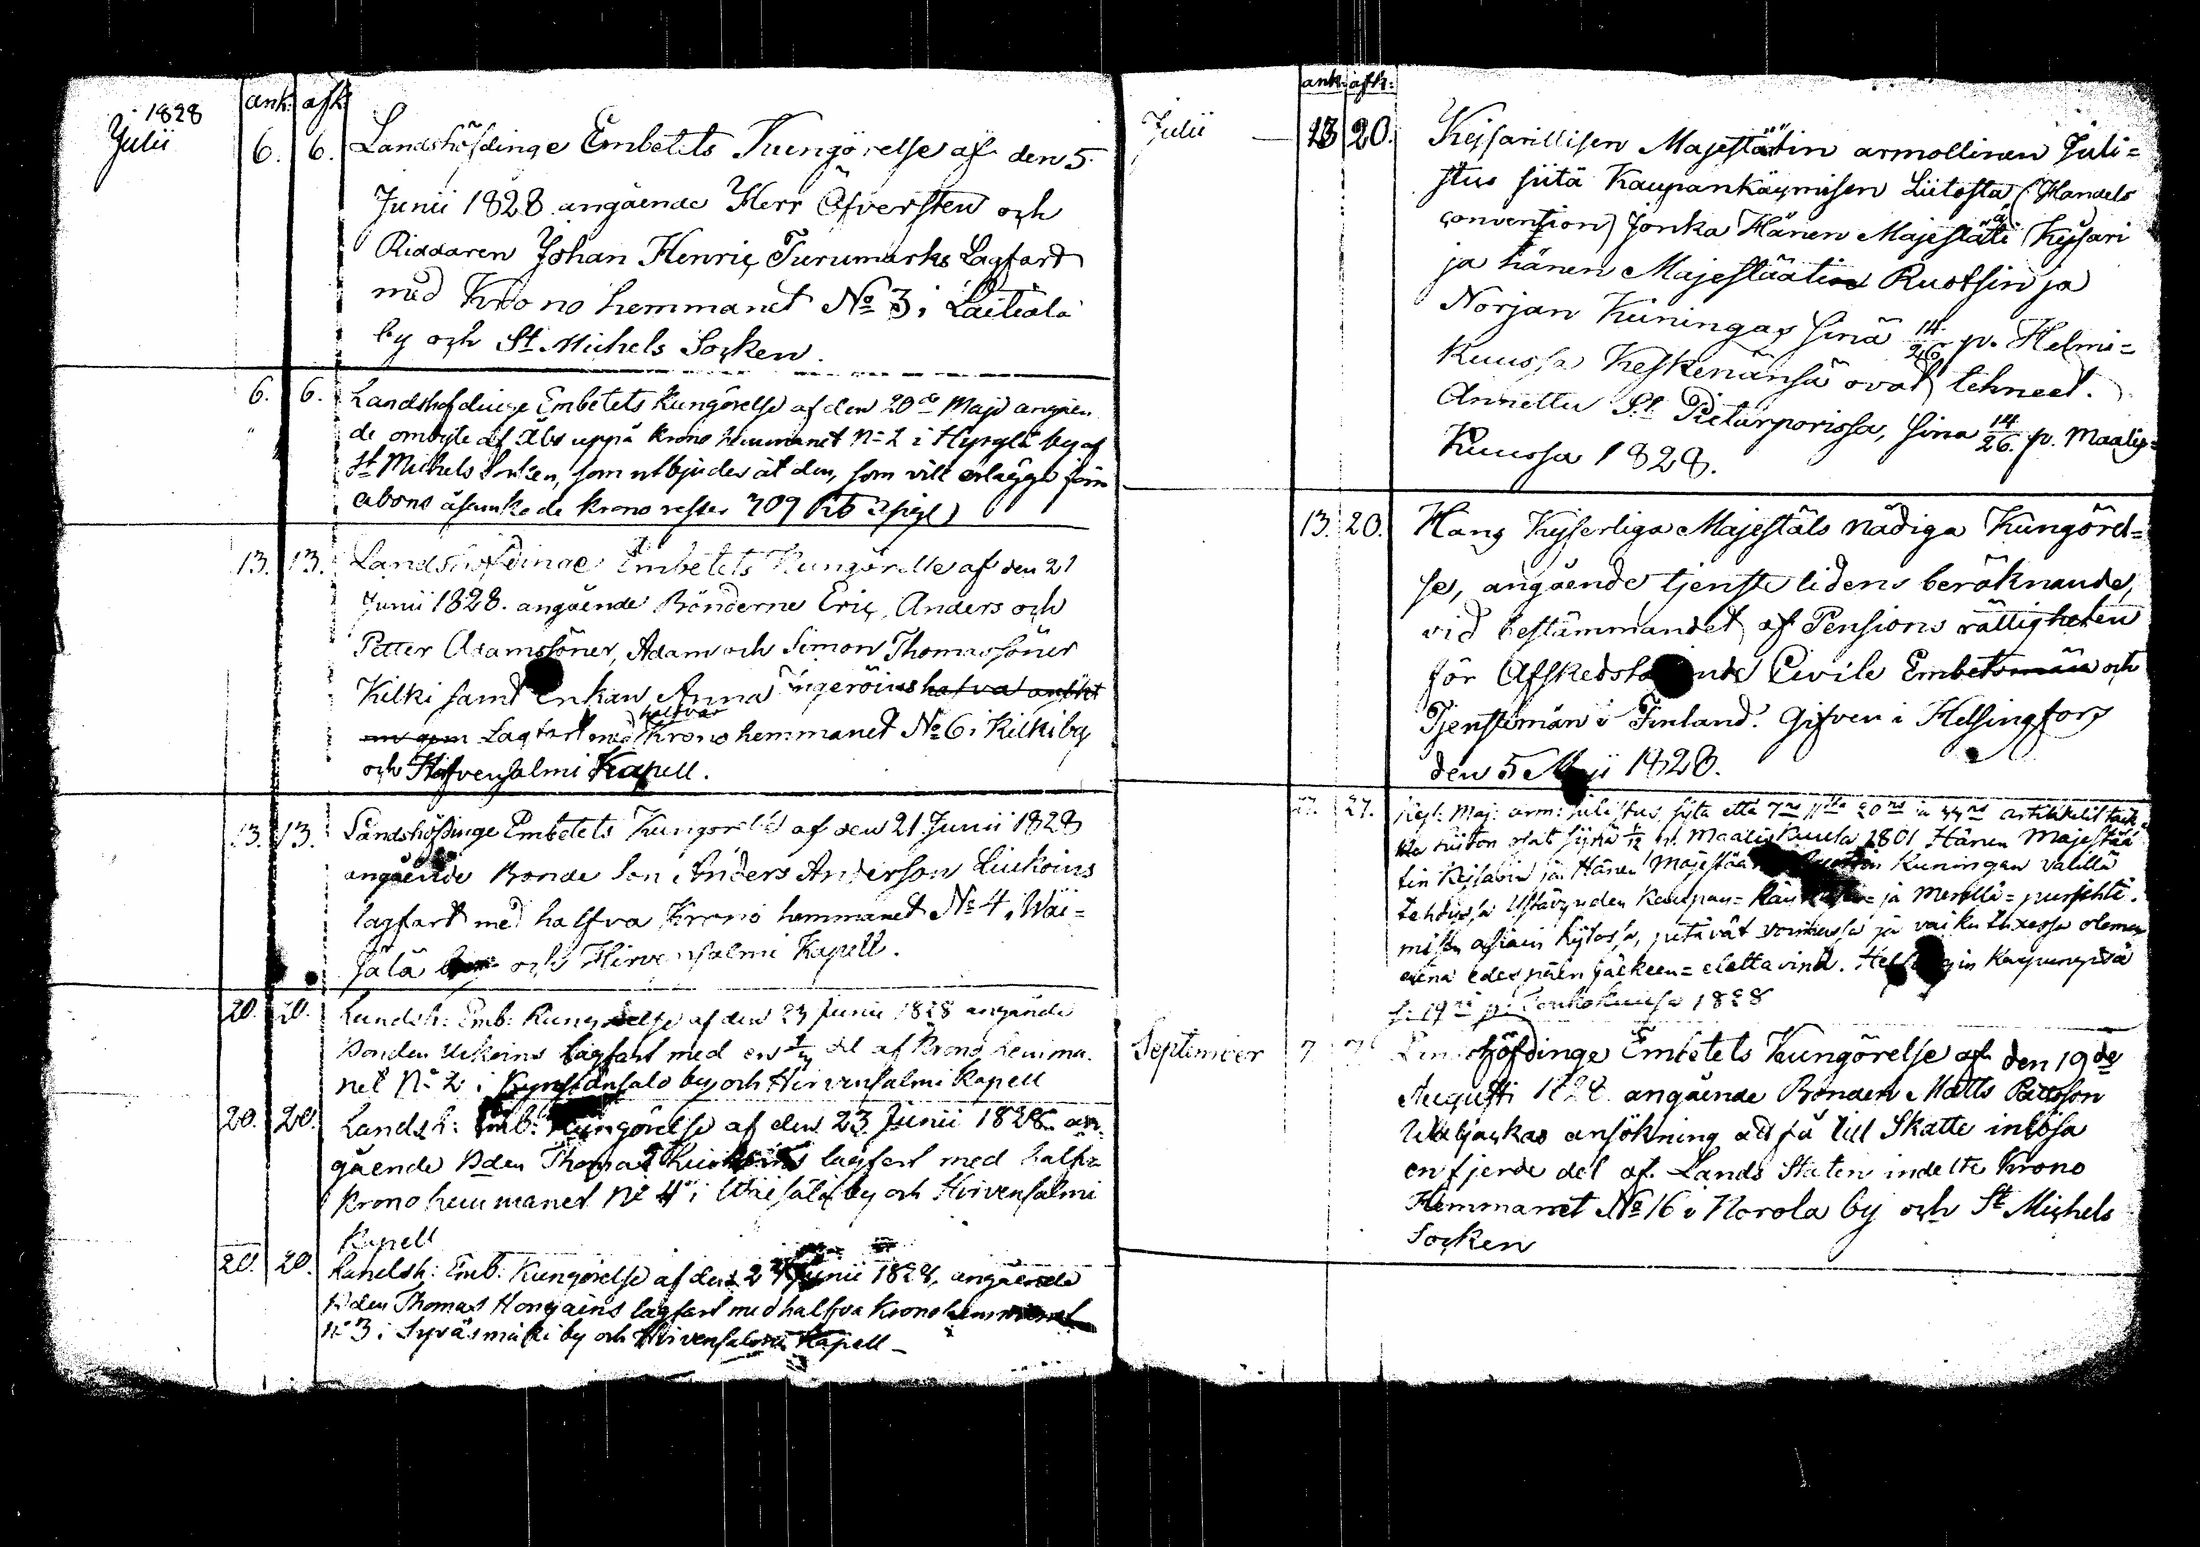 1828 ank: afk:
Julii 6. 6. Landshöfdinge Embetets Kungörelse af den 5
Junii 1828 angående Herr Öfversten och
Riddaren Johan Henric Turumarks Lagfart
med Krono hemmanet No 3 i Laitiala
by och St Michels Socken.
6. 6. Landshöfdinge Embetets Kungörelse af den 20de Maji angåen
de ombyte af Åbo uppå Krono hemmanet No 2 i Hyrylä by af
St Michels Socken, som utbjudes åt den, som vill erlägga förra
åbons åsamkade krono rester 709
13. 13. Landshöfdinge Embetets Kungörelse af den 21
Junii 1828. angående Bönderne Eric, Anders och
Petter Adamssöner, Adam och Simon Thomassöner
Kilki samt Enkan Anna Ingeröins halfva
Lagfart med halfva Krono hemmanet No 6 i Kilki by
och Hirfvensalmi Kapell.
13. 13. Landshöfdinge Embetets Kungörelse af den 21 Junii 1828
angående Bonde Son Anders Anderson Liukoins
lagfart med halfva Krono hemmanet No 4 i Wäi=
sälä by och Hirvensalmi Kapell.
20. 20. Landsh: Emb: Kungörelse af den 23 Junii 1828 angående
Bonden Uckoins lagfart med en del af Krono hemma
net No 2 i Kynsiänsalo by och Hirvensalmi Kapell
20. 20. Landsh: Emb: Kungörelse af den 23 Junii 1828 an
gående Bden Thomas lagfart med halfva
Krono hemmanet No 4 i Wäisälä by och Hirvensalmi
Kapell
20. 20. Landsh: Emb: Kungörelse af den Junii 1828, angående
Bden Thomas Hongains lagfart med halfva Krono hemmanet
No 3 i Syväsmäki by och Hirvensalmi Kapell
ank: afk:
Julii 13 20. Keisarillisen Majestätin armollinen Juli=
stus siitä Kaupankäymisen Liitosta (Handels
convention) jonka Hänen Majestäti Keisari
ja hänen Majestääti Ruotsin ja
Norjan Kuningas sinä 14/26 p. Helmi=
kuussa Keskenänsä ovat tehneet.
Annettu St Pietarporissa, sinä 14/26. p. Maalis=
Kuussa 1828.
13. 20. Hans Kejserliga Majestäts nådiga Kungörel=
se, angående tjenste tidens beräknande,
vid bestämmandet af Pensions rättigheten
för Afskedstagande Civile Embetsmän och
Tjenstemän i Finland. Gifven i Helsingfors
den 5 Maji 1828.
27. 27. Kejs: Maj: arm: julistus, siitä että 7ns 11sta 20ns ja 44ns artikkelit
liiton ovat sijnä 1/12 p. Maalis Kuusa 1801 Hänen Majestää
tin Keisarin ja Hänen Majestää Ruotsin Kuningan välillä
tehdyssä Ystävyyden Kaupan= ja Merellä= purjehti=
misen asiain liitossa, pitävät voimassa ja vaikutuxessa oleman
edespäin jälkeen= elettävinä. Helsingin Kaupungissa
s: 19 p: Toukokuusa 1828
September 7 7 Landshöfdinge Embetets Kungörelse af den 19de
Augusti 1828 angående Bonden Matts Pålsson
Waljackas ansökning att få till Skatte inlösa
en fjerde del af Lands Staten indelte Krono
Hemmanet No 16 i Norola by och St Michels
Socken